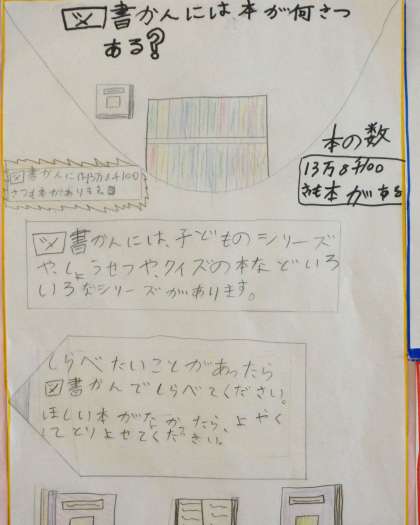 図書かんには本が何さつ
ある?
本の数
13万8千100
さつも本がある
図書かんに13万8千100
さつも本があります。
図書かんには、子どものシリーズ
や、しょうせつや、クイズの本などいろ
いろなシリーズがあります。
しらべたいことがあったら
図書かんでしらべてください。
ほしい本がなかったら、よやく
してとりよせてください。